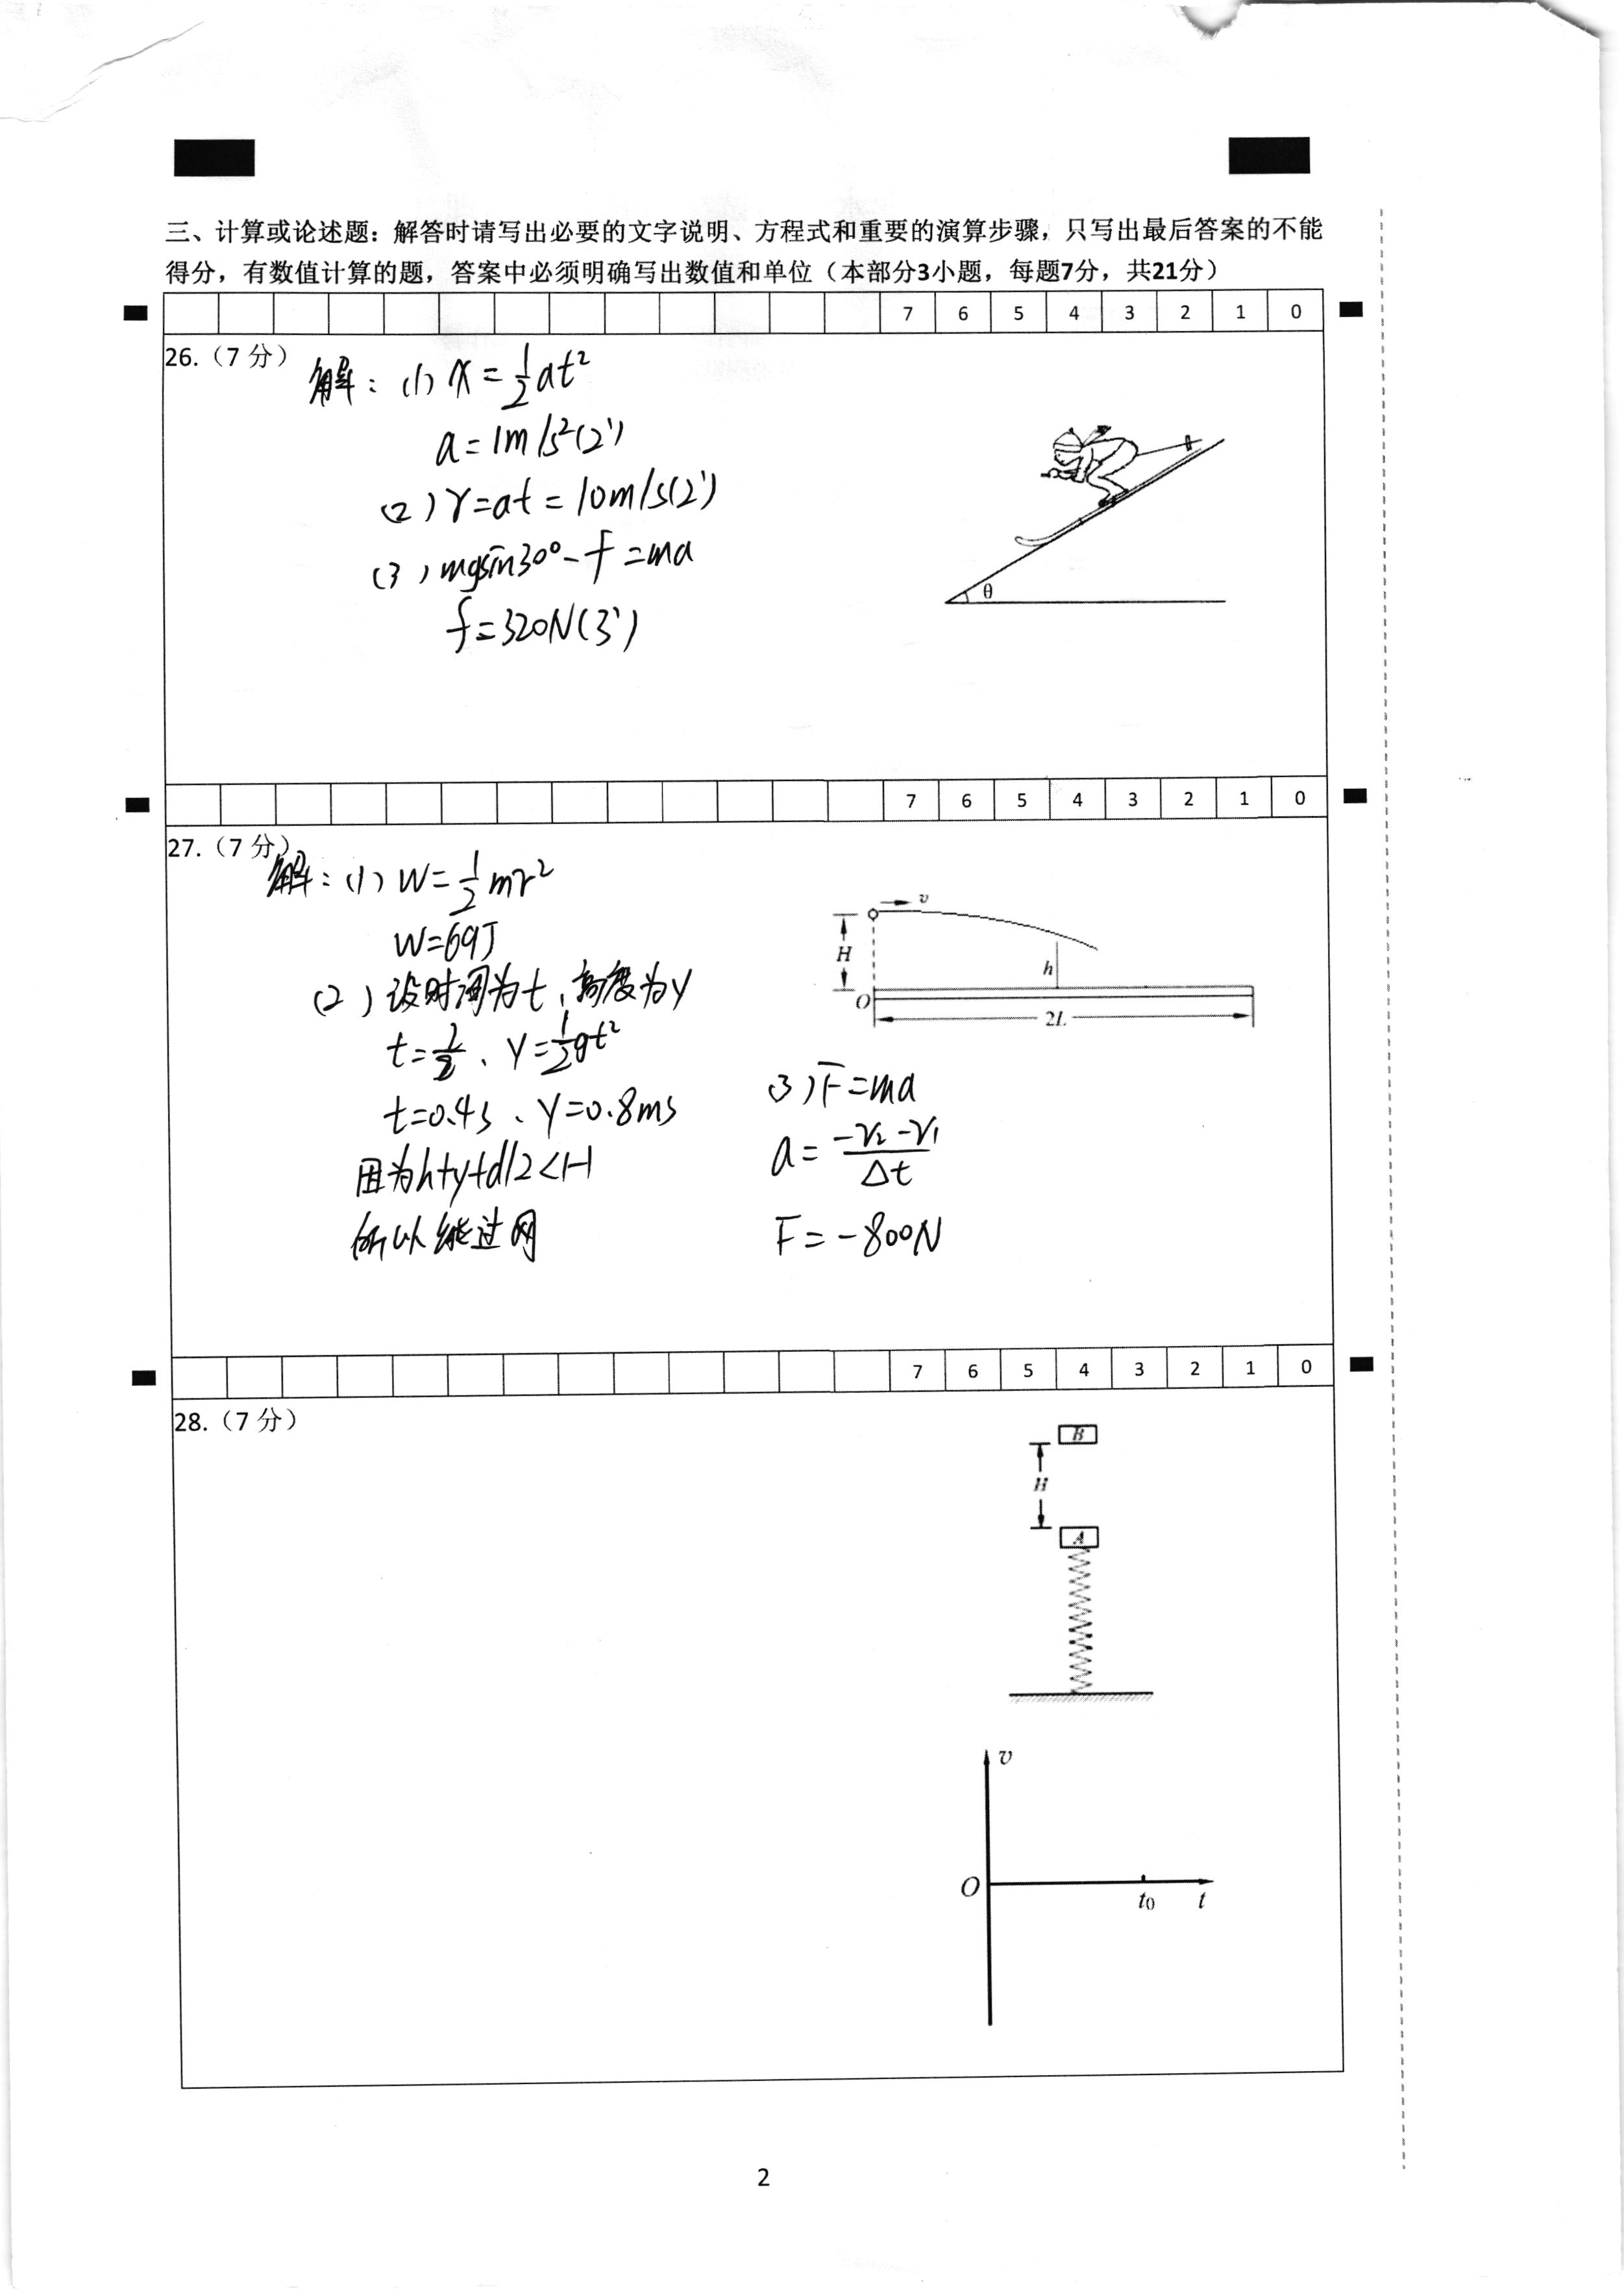 三、计算或论述题：解答时请写出必要的文字说明、方程式和重要的演算步骤，只写出最后答案的不能
得分，有数值计算的题，答案中必须明确写出数值和单位（本部分3小题，每题7分，共21分）
7 6 5 4 3 2 1 0
26.（7 分）
解：(1) x = 1/2 at²
a = 1m/s²(2')
(2) v=at = 10m/s(2')
(3) mgsin30° - f = ma
f = 320N(3')
θ
7 6 5 4 3 2 1 0
27.（7 分）
解：(1) W = 1/2 mv²
W=69J
(2) 设时间为t、高度为y
t= 、y=1/2 gt²
t=0.4s、y=0.8ms
因为h+y+d/2<H
所以能过网
v
H
h
O
2L
(3) F=ma
a = (-v₂-v₁)/Δt
F = -800N
7 6 5 4 3 2 1 0
28.（7 分）
B
H
A
v
O
t₀
t
2